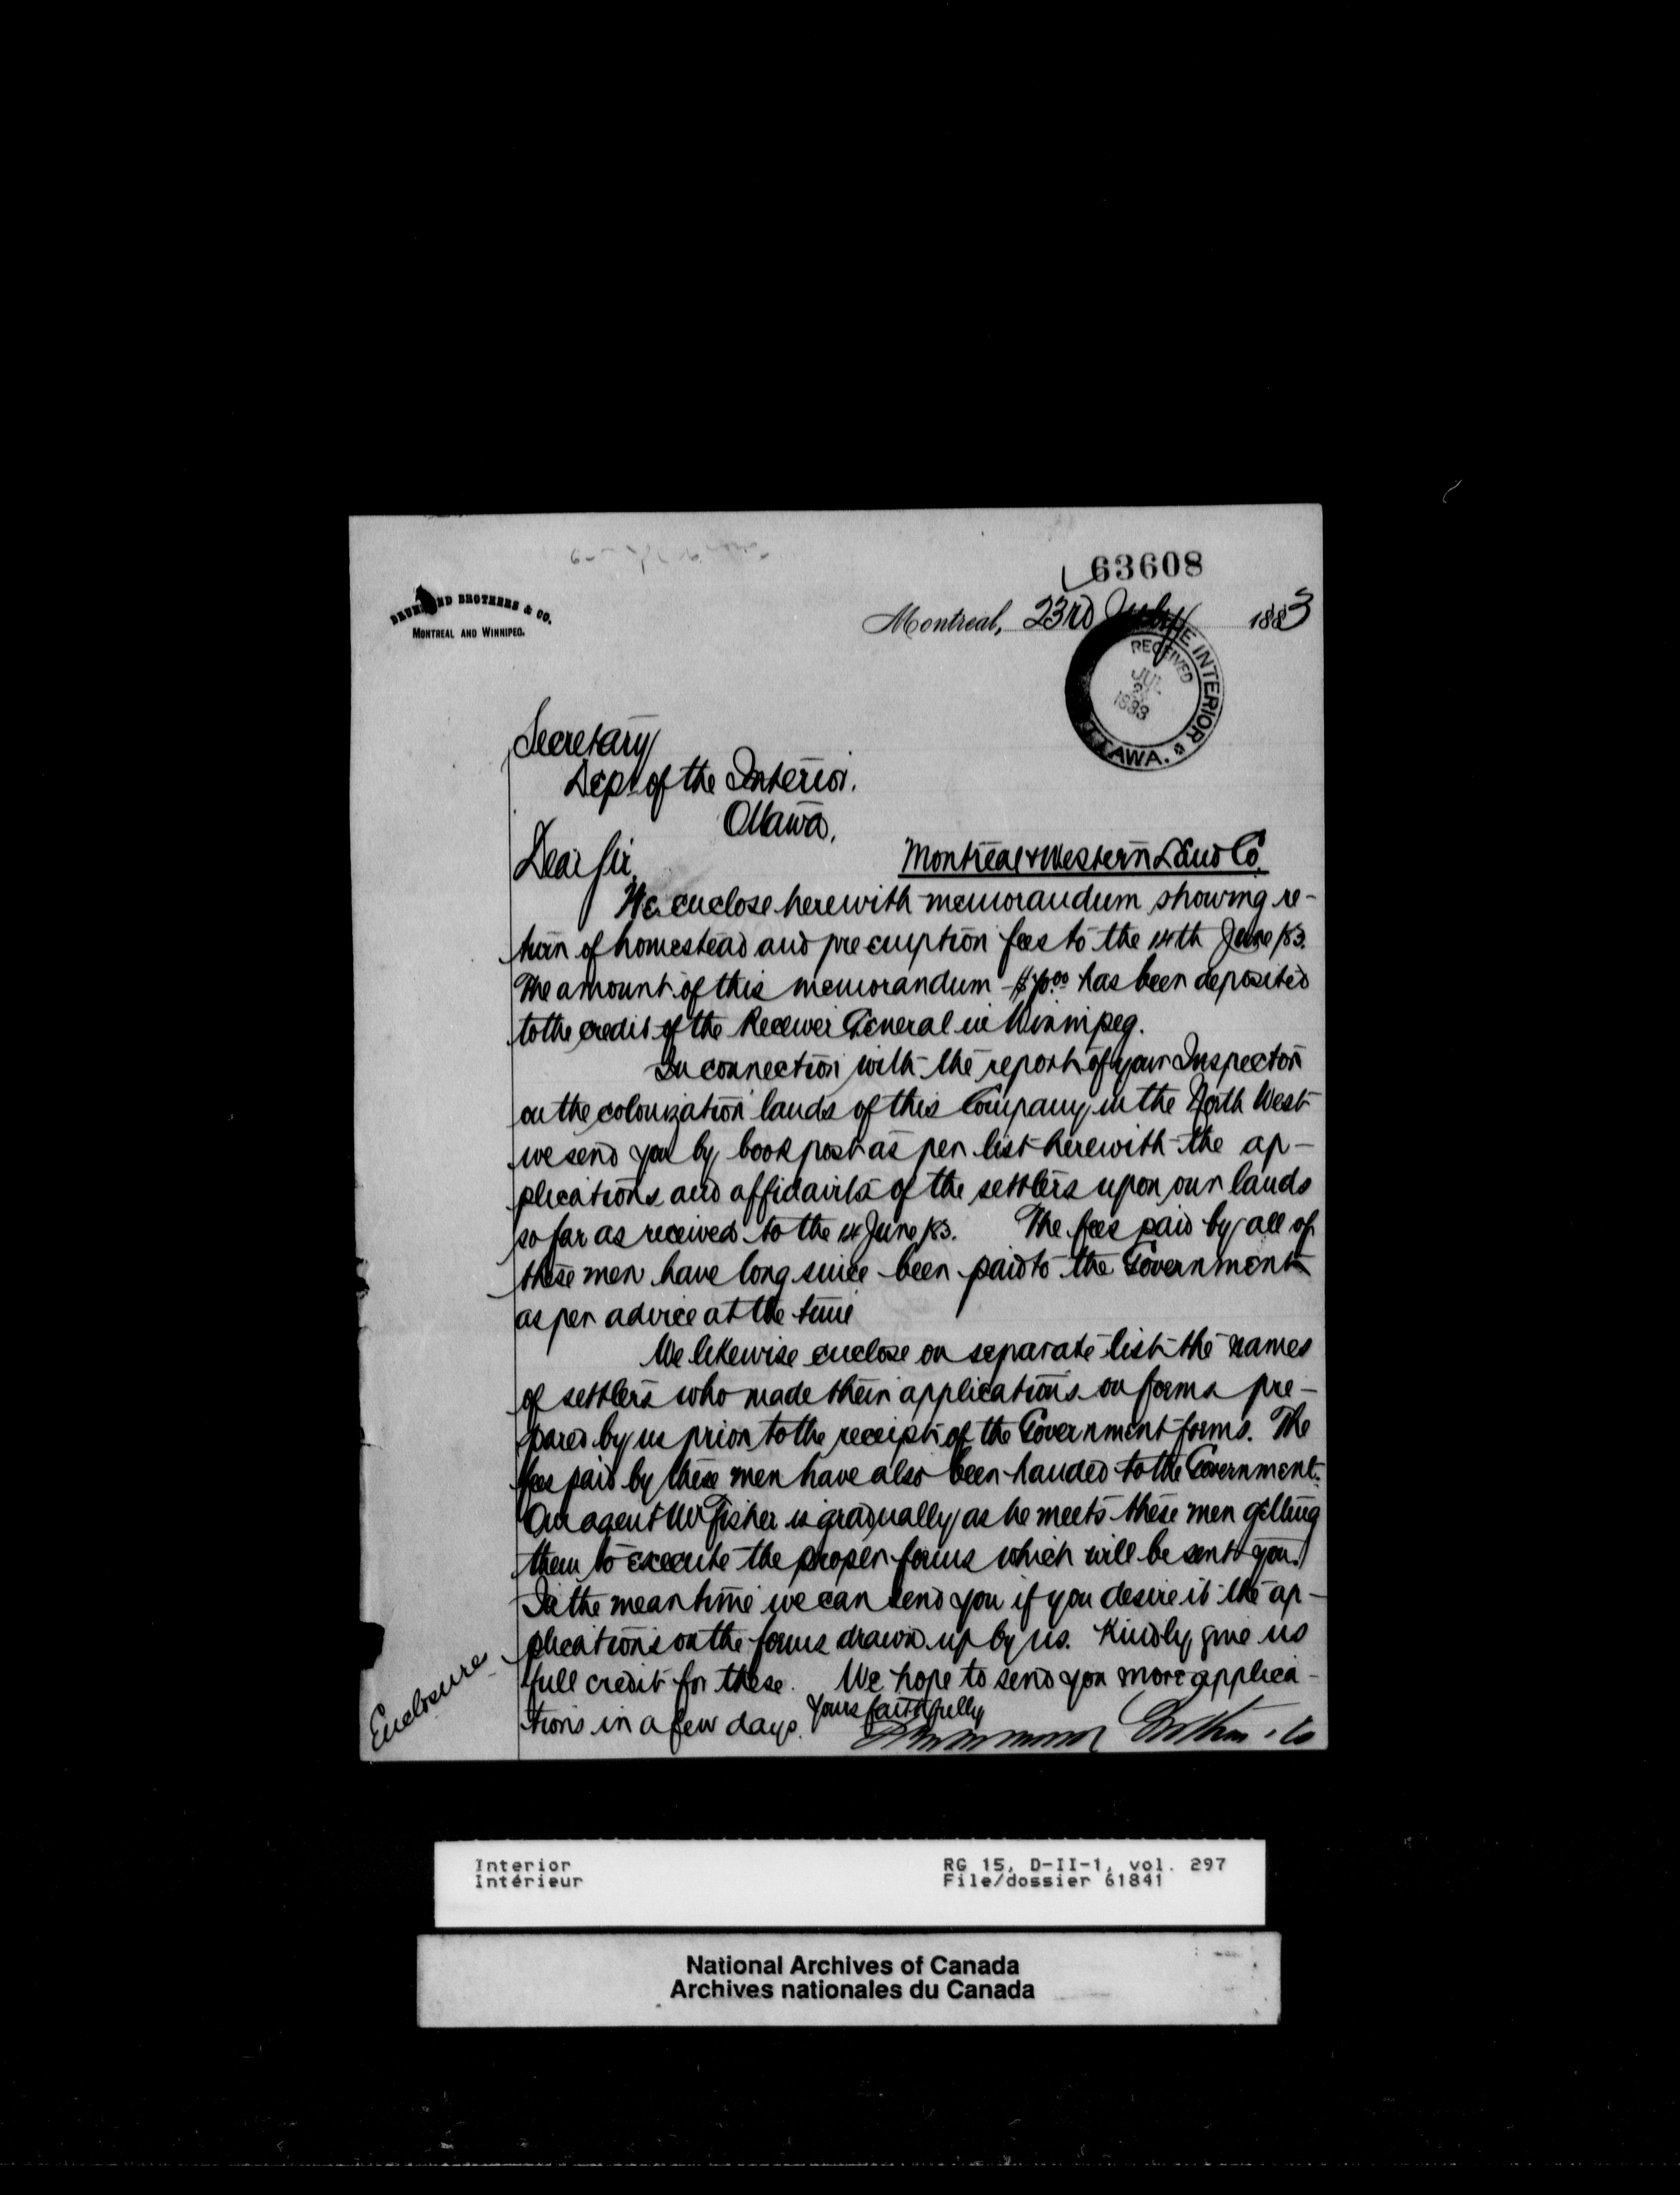 63608
DRUMMOND BROTHERS & CO.
MONTREAL AND WINNIPEG.
Montreal, 23rd July 1883
THE INTERIOR
RECEIVED
JUL
1883
OTTAWA.
Secretary
Dept of the Interior.
Ottawa.
Dear Sir,
Montreal & Western Land Co.
We enclose herewith memorandum showing re-
turn of homestead and preemption fees to the 14th June /83.
The amount of this memorandum has been deposited
to the credit of the Receiver General in Winnipeg.
In connection with the report of your Inspector
on the colonization lands of this Company in the North West
we send you by book post as per list herewith the ap-
plications and affidavits of the settlers upon our lands
so far as received to the 14 June /83. The fees paid by all of
these men have long since been paid to the Government
as per advice at the time
We likewise enclose on separate list the names
of settlers who made their applications on forms pre-
pared by us prior to the receipt of the Government forms. The
fees paid by these men have also been handed to the Government.
Our agent Mr Fisher is gradually as he meets these men getting
them to execute the proper forms which will be sent you.
In the meantime we can send you if you desire it the ap-
plications on the forms drawn up by us. Kindly give us
full credit for these. We hope to send you more applica-
tions in a few days.
Yours faithfully
Drummond Brothers & Co
Enclosures
Interior
Intérieur
RG 15, D-II-1, vol. 297
File/dossier 61841
National Archives of Canada
Archives nationales du Canada